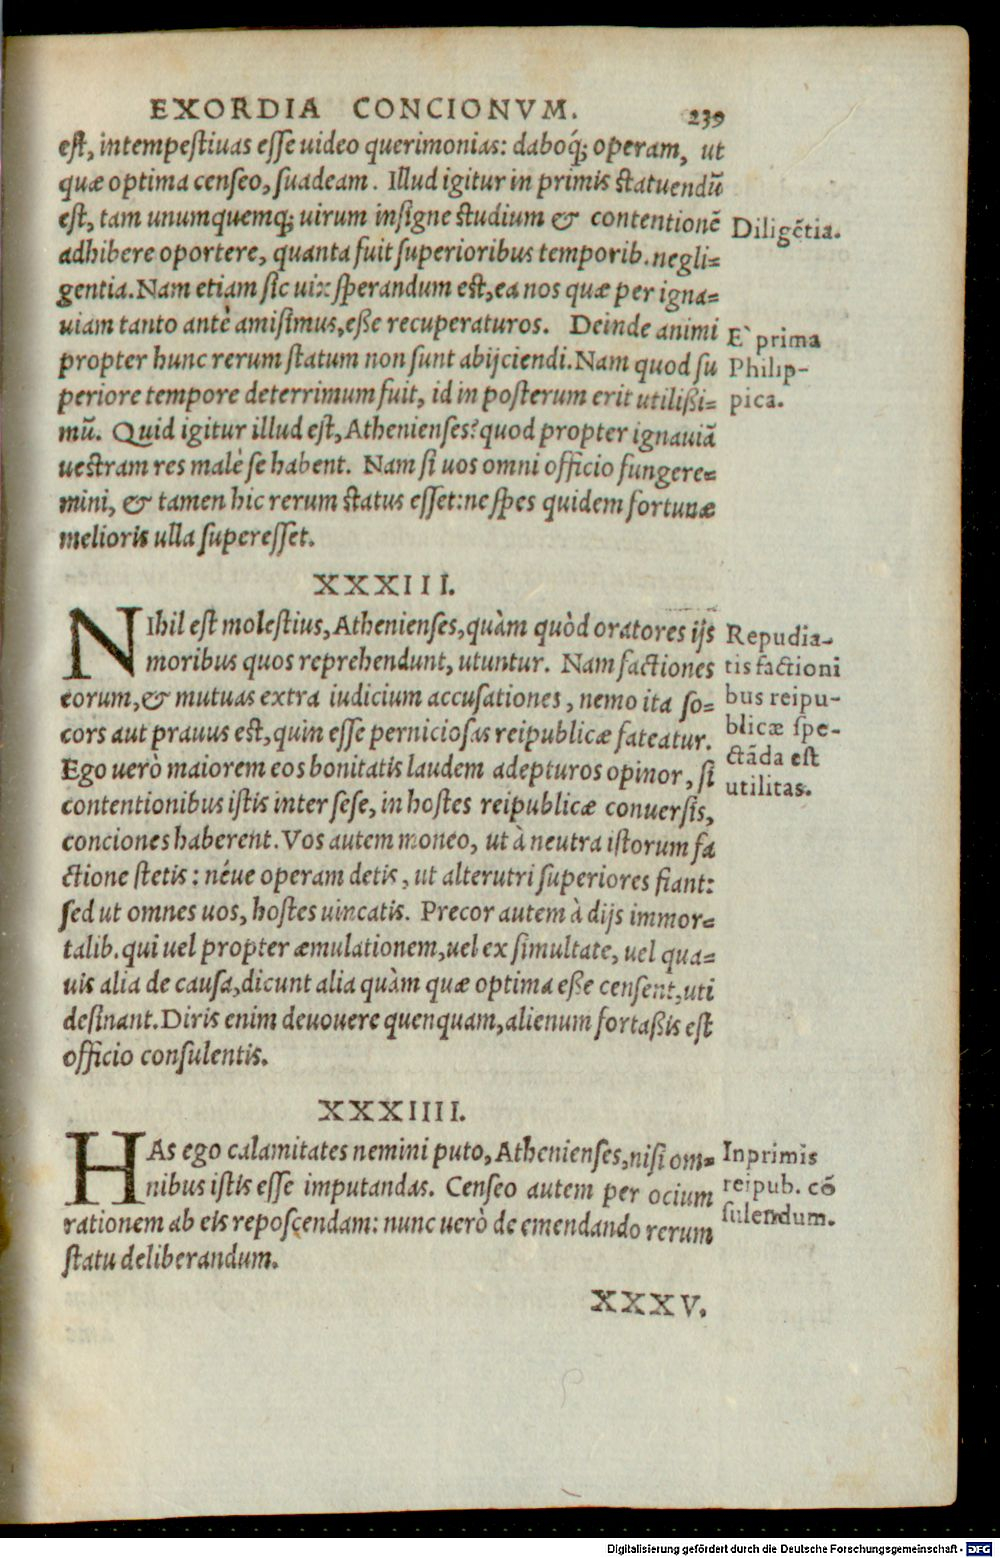 EXORDIA CONCIONVM. 239
est, intempestiuas esse uideo querimonias: daboq́; operam, ut
quæ optima censeo, suadeam. Illud igitur in primis statuendū
est, tam unumquemq; uirum insigne studium & contentionē
Diligētia.
adhibere oportere, quanta fuit superioribus temporib. negli=
gentia. Nam etiam sic uix sperandum est, ea nos quæ per igna=
uiam tanto antè amisimus, eße recuperaturos. Deinde animi
propter hunc rerum statum non sunt abijciendi. Nam quod su
periore tempore deterrimum fuit, id in posterum erit utilißi=
È prima
Philip-
pica.
mū. Quid igitur illud est, Athenienses? quod propter ignauiā
uestram res malè se habent. Nam si uos omni officio fungere=
mini, & tamen hic rerum status esset: ne spes quidem fortunæ
melioris ulla superesset.
XXXIII.
NIhil est molestius, Athenienses, quàm quòd oratores ijs
moribus quos reprehendunt, utuntur. Nam factiones
eorum, & mutuas extra iudicium accusationes, nemo ita so=
cors aut prauus est, quin esse perniciosas reipublicæ fateatur.
Ego uerò maiorem eos bonitatis laudem adepturos opinor, si
Repudia-
tis factioni
bus reipu-
blicæ spe-
ctāda est
utilitas.
contentionibus istis inter sese, in hostes reipublicæ conuersis,
conciones haberent. Vos autem moneo, ut à neutra istorum fa
ctione stetis: néue operam detis, ut alterutri superiores fiant:
sed ut omnes uos, hostes uincatis. Precor autem à dijs immor=
talib. qui uel propter æmulationem, uel ex simultate, uel qua=
uis alia de causa, dicunt alia quàm quæ optima eße censent, uti
desinant. Diris enim deuouere quenquam, alienum fortaßis est
officio consulentis.
XXXIIII.
HAs ego calamitates nemini puto, Athenienses, nisi om=
nibus istis esse imputandas. Censeo autem per ocium
rationem ab eis reposcendam: nunc uerò de emendando rerum
statu deliberandum.
Inprimis
reipub. cō
sulendum.
XXXV.
Digitalisierung gefördert durch die Deutsche Forschungsgemeinschaft - DFG